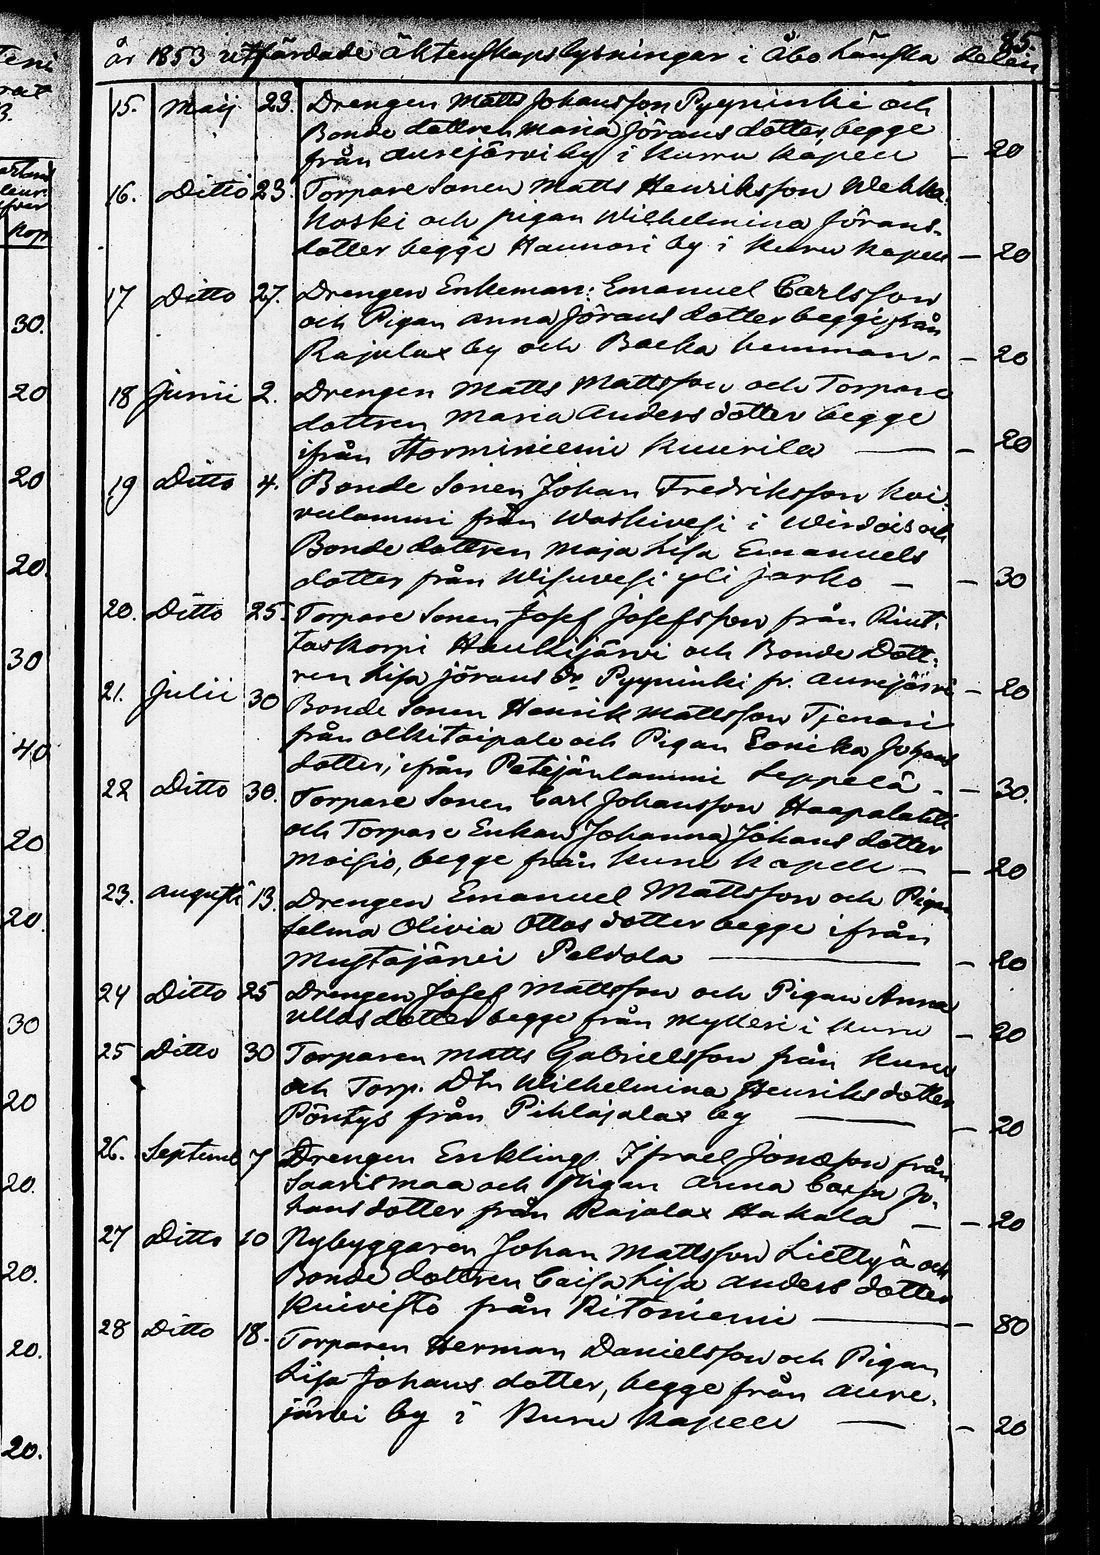 85.
år 1853 utfärdade äktenskaps lysningar i Åbo Länska delen
15. Maij 23. Drengen Matts Johansson Pyyninki och
Bonde dottren Maria Jörans dotter, begge
från Aurejärvi by i Kuru Kapell — 20
16. Ditto 23. Torpare Sonen Matts Henriksson Wehka
koski och pigan Wilhelmina Jörans-
dotter begge Haunori by i Kuru Kapell — 20
17 Ditto 27. Drengen Enkeman: Emanuel Carlsson
och Pigan Anna Jörans dotter begge från
Rajalax by och Backa hemman. — 20
18 Junii 2. Drengen Matts Mattsson och Torpare
dottren Maria Anders dotter begge
ifrån Horminiemi Kuurila — — 20
19 Ditto 4. Bonde Sonen Johan Fredriksson Koi
vulammi från Waskivesi i Wirdois och
Bonde dottren Maja Lisa Emanuels
dotter från Wisuvesi yli Jarko — — 30
20. Ditto 25. Torpare Sonen Josef Josefsson från Riut:
taskorpi Haukijärvi och Bonde Dott:
ren Lisa Jörans dr Pyyninki fr. Aurejärvi — 20
21. Julii 30 Bonde Sonen Henrik Mattsson Tjenari
från Olkitaipale och Pigan Eonika Johans
dotter, ifrån Petejänlammi Seppelä - — 30.
22 Ditto 30. Torpare Sonen Carl Johansson Haapalahti
och Torpare Enkan Johanna Johans dotter
Moisio, begge från Kuru Kapell — — 20
23. Augusti 13. Drengen Emanuel Mattsson och Pigan
Selma Olivia Ottos dotter begge ifrån
Mustajärvi Peldola — — 20
24 Ditto 25 Drengen Josef Mattsson och Pigan Anna
Ullas dotter begge från Mylleri i Kuru — 20
25 Ditto 30 Torparen Matts Gabrielsson från Kuru
och Torp. Dtr Wilhelmina Henriks dotter
Pöntys från Pihlajalax by — — 20
26. Septemb 7 Drengen Enkling Israel Jonæson från
Saarismaa och Pigan Anna Caisa Jo-
hans dotter från Rajalax Hakala — — 20
27 Ditto 10 Nybyggaren Johan Mattsson Liettyä och
Bonde dottren Caisa Lisa Anders dotter
Kuivisto från Ritoniemi — — 80
28 Ditto 18. Torparen Herman Danielsson och Pigan
Lisa Johans dotter, begge från Aure-
järvi by i Kuru Kapell — — 20
30.
20
20
20.
30
40
20
20.
30
20
20.
20.
20.
20.